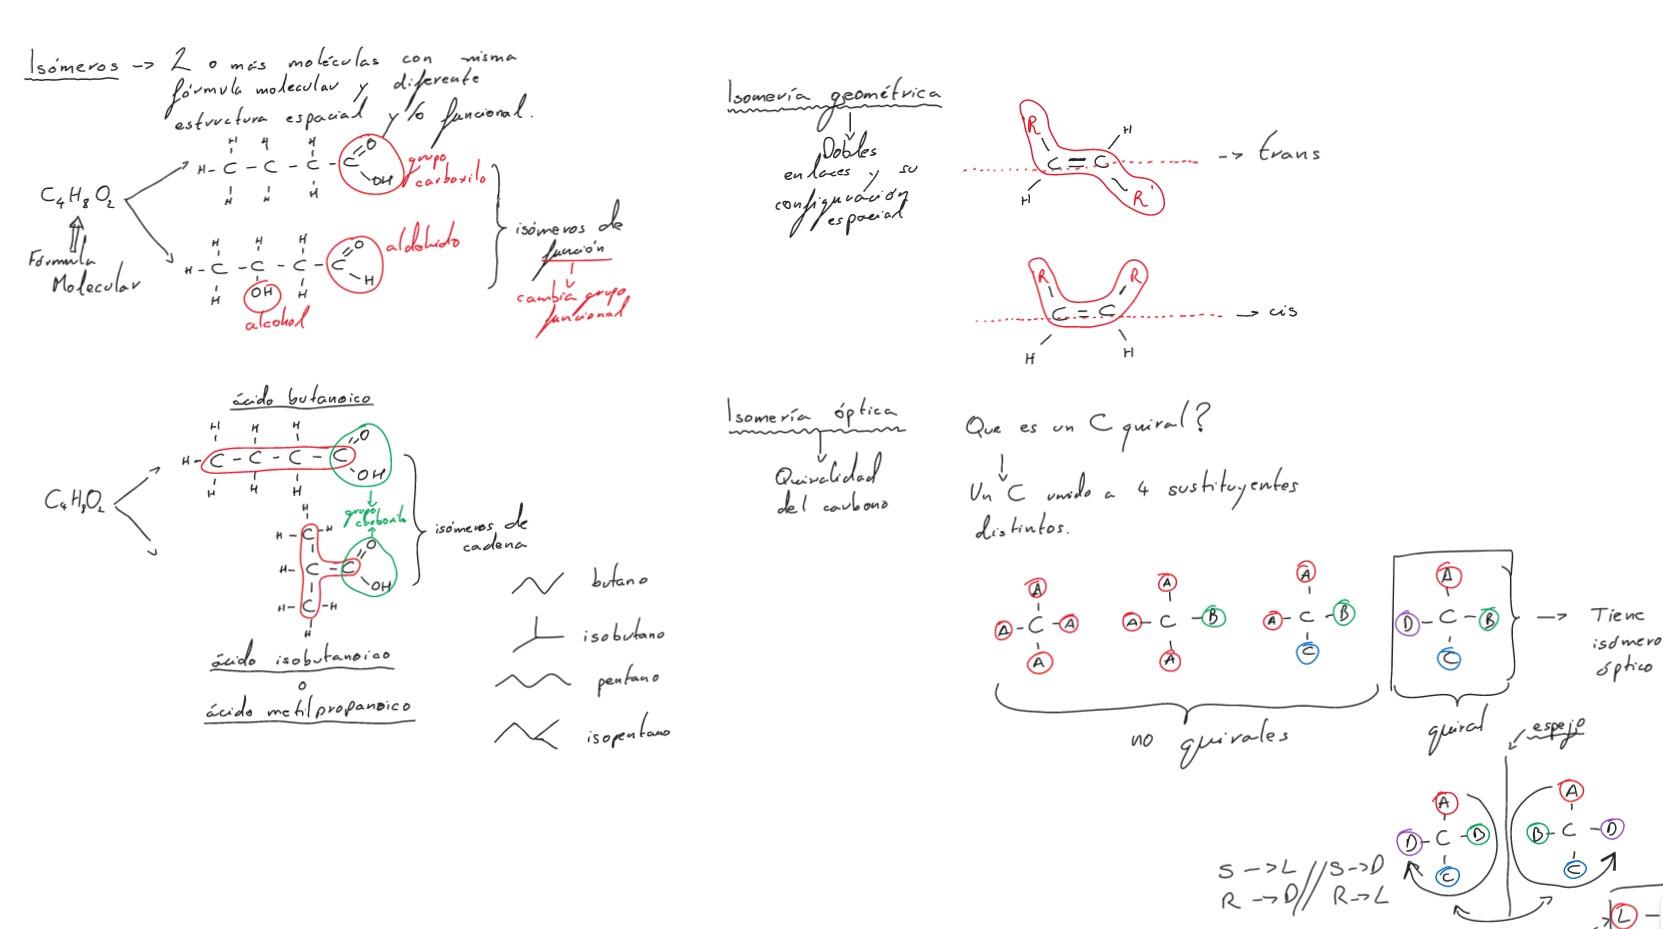 Isómeros -> 2 o más moléculas con misma
fórmula molecular y diferente
estructura espacial y/o funcional.
C4H8O2
Fórmula
Molecular
H H H
H - C - C - C - C = O
OH
H H H
grupo
carboxilo
H H H
H - C - C - C - C = O
H
H OH H
aldehido
alcohol
isómeros de
función
cambia grupo
funcional
ácido butanoico
C4H8O2
H H H
H - C - C - C - C = O
OH
H H H
grupo
carboxilo
H
H - C - H
H - C - C = O
OH
H - C - H
H
isómeros de
cadena
ácido isobutanoico
o
ácido metilpropanoico
butano
isobutano
pentano
isopentano
Isomería geométrica
Dobles
enlaces y su
configuración
espacial
R H
C = C
H R'
-> trans
R R
C = C
H H
-> cis
Isomería óptica
Quiralidad
del carbono
Que es un C quiral?
Un C unido a 4 sustituyentes
distintos.
A A A A
A - C - A A - C - B A - C - B D - C - B
A A C C
Tiene
isómero
óptico
no quirales
quiral
espejo
A A
D - C - B B - C - D
C C
S -> L // S -> D
R -> D // R -> L
L -